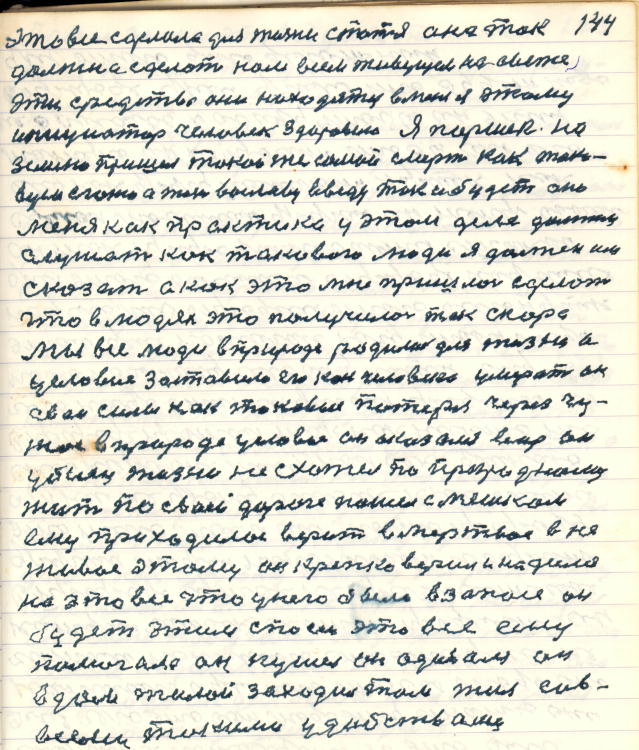 144
это все сделала для жизни статя она так
должна сделоть нам всем живущем на свете
эти средство они находятся в меня этому
инициатор человек здоровие Я паршек. на
землю пришел такой же самой смерт как
а жен выставу введу так и будет оно
меня как практика у этом деле должны
слушат как такового люди я должен им
сказат а как это мне пришлос сделот
что в людях это получилос так скора
мы все люди в природе родилис для жизни а
условие заставило его как человека умират он
свои сили как таковые потерял через чу-
жое в природе условие он оказался вевр он
убиец жизни не схотел по природному
жит по своей дороге пошел с мешком
ему приходилос верит в мертвое в не
живое этому он крепко верил и надеялся
на это все что у него было в запасе он
будет этим спосен это все ему
помогало он кушел он одивалс он
в дом жилой заходил там жил сов-
всеми такими удобствами